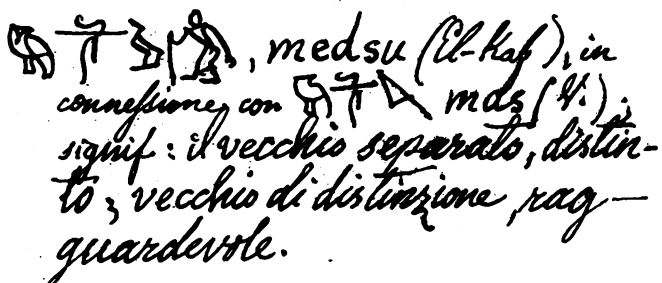 , medsu (El-Kab), in
connessione con mas (V.);
signif: il vecchio separato, distin-
to; vecchio di distinzione, rag-
guardevole.